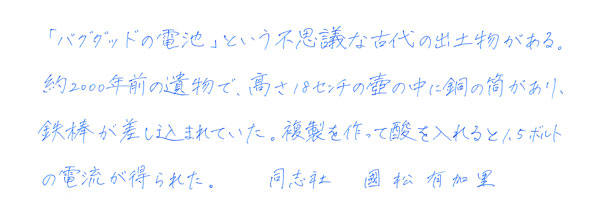 「バグダッドの電池」という不思議な古代の出土物がある。
約2000年前の遺物で、高さ18センチの壺の中に銅の筒があり、
鉄棒が差し込まれていた。複製を作って酸を入れると1.5ボルト
の電流が得られた。 同志社 國松有加里